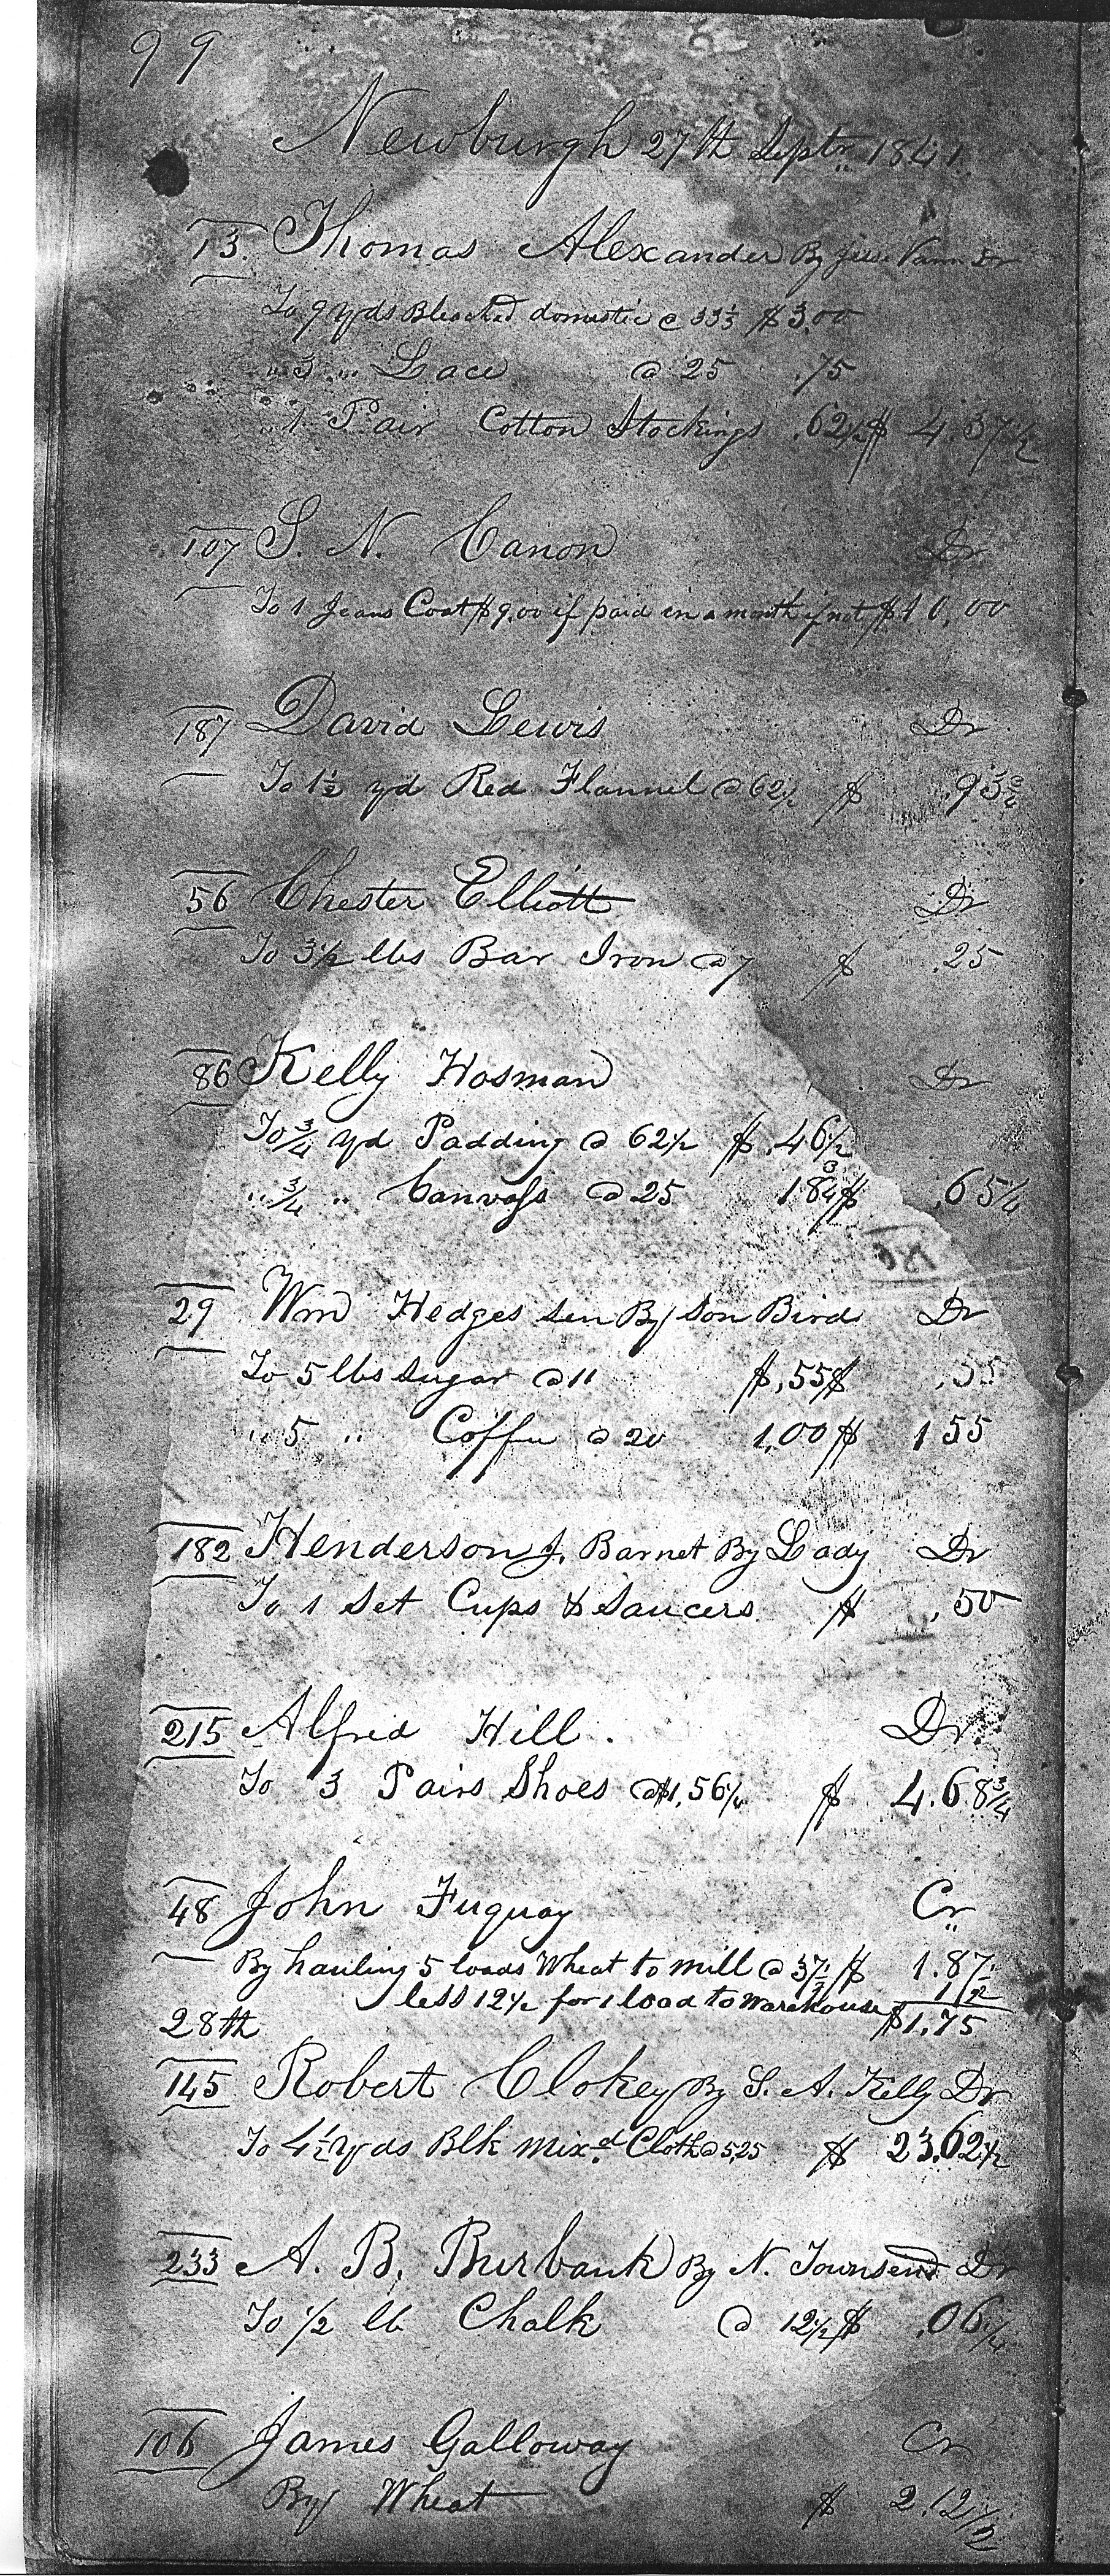 99
Newburgh 27th Septr 1841.
13. Thomas Alexander By Jesse Vann Dr
To 9 yds Bleached domestic @ 33⅓ $3.00
" 3 " Lace @ 25 .75
" 1 Pair Cotton Stockings .62½ $ 4.37½
107 S. N. Canon Dr
To 1 Jeans Coat $9.00 if paid in a month if not $10.00
187 David Lewis Dr
To 1½ yd Red Flannel @ 62½ $ .93¾
56 Chester Elliott Dr
To 3½ lbs Bar Iron @ 7 $ .25
86 Kelly Hosman Dr
To ¾ yd Padding @ 62½ $ .46½
" ¾ " Canvass @ 25 18¾ $ .65¼
29 Wm Hedges sen By Son Bird Dr
To 5 lbs sugar @ 11 $ .55 $ .55
" 5 " Coffee @ 20 1.00 $ 1 55
182 Henderson J. Barnet By Lady Dr
To 1 Set Cups & Saucers $ .50
215 Alfred Hill. Dr
To 3 Pairs Shoes @ $1.56¼ $ 4.68¾
48 John Fuquay Cr
By hauling 5 loads Wheat to mill @ 37½ $ 1.87½
less 12½ for 1 load to Warehouse 12
$1.75
28th
145 Robert Clokey By S. A. Kelly Dr
To 4½ yds Blk mixd Cloth @ 5.25 $ 23.62½
233 A. B. Burbank By N. Townsend Dr
To ½ lb Chalk @ 12½ $ .06¼
106 James Galloway Cr
By Wheat $ 2.12½